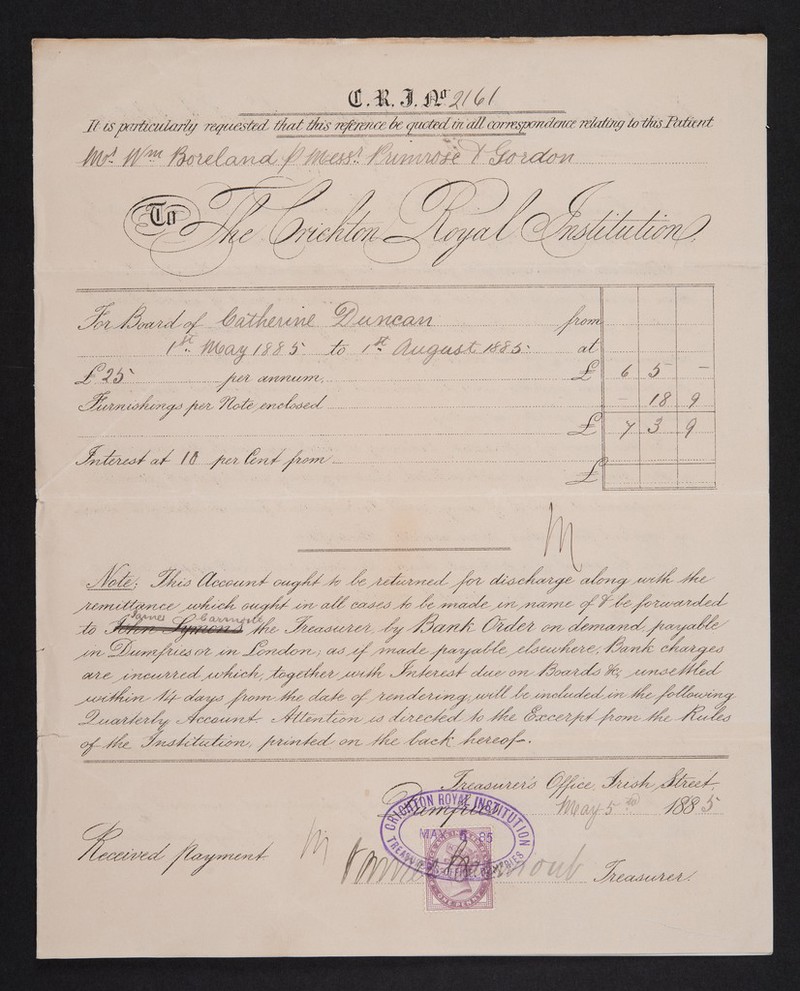 C. R. I. No. 2161
It is particularly requested that this reference be quoted in all correspondence relating to this Patient
Wm Boreland p Messrs Primrose & Gordon
To The Crichton Royal Institution,
For Board of Catherine Duncan from
1st May 1885 to 1st August 1885 at
£25 per annum, £ 6 5 -
Furnishings per Note enclosed - 18 9
£ 7 3 9
Interest at 10 per Cent from
£
Note: This Account ought to be returned for discharge along with the
remittance, which ought in all cases to be made in name of & be forwarded
James Carmont
to John Symons the Treasurer, by Bank Order on demand, payable
in Dumfries or in London; as, if made payable elsewhere, Bank charges
are incurred which, together with Interest due on Boards &c, unsettled
within 14 days from the date of rendering, will be included in the following
Quarterly Account. Attention is directed to the Excerpt from the Rules
of the Institution, printed on the back hereof.
Treasurer's Office, Irish Street,
Dumfries May 5th 1885
CRICHTON ROYAL INSTITUTION
MAY 5 85
TREASURER'S OFFICE DUMFRIES
Received payment
James Carmont Treasurer.
ONE PENNY